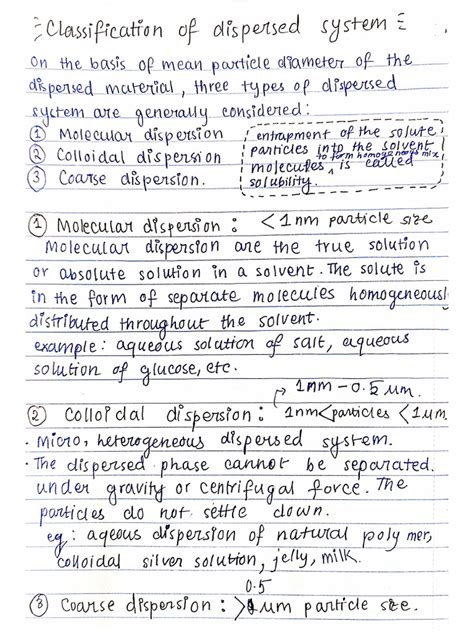 Classification of dispersed system
On the basis of mean particle diameter of the
dispersed material, three types of dispersed
system are generally considered:
① Molecular dispersion
② Colloidal dispersion
③ Coarse dispersion.
entrapment of the solute
particles into the solvent
to form homogenous mix
molecules, is called
solubility.
① Molecular dispersion : < 1nm particle size
Molecular dispersion are the true solution
or absolute solution in a solvent. The solute is
in the form of separate molecules homogeneousl
distributed throughout the solvent.
example: aqueous solution of salt, aqueous
solution of glucose, etc.
→ 1nm - 0.5 µm.
② Colloidal dispersion : 1nm<particles <1µm
• Micro, heterogeneous dispersed system.
• The dispersed phase cannot be separated
under gravity or centrifugal force. The
particles do not settle down.
eg: aqeous dispersion of natural polymer,
colloidal silver solution, jelly, milk.
0.5
③ Coarse dispersion : >1µm particle size.